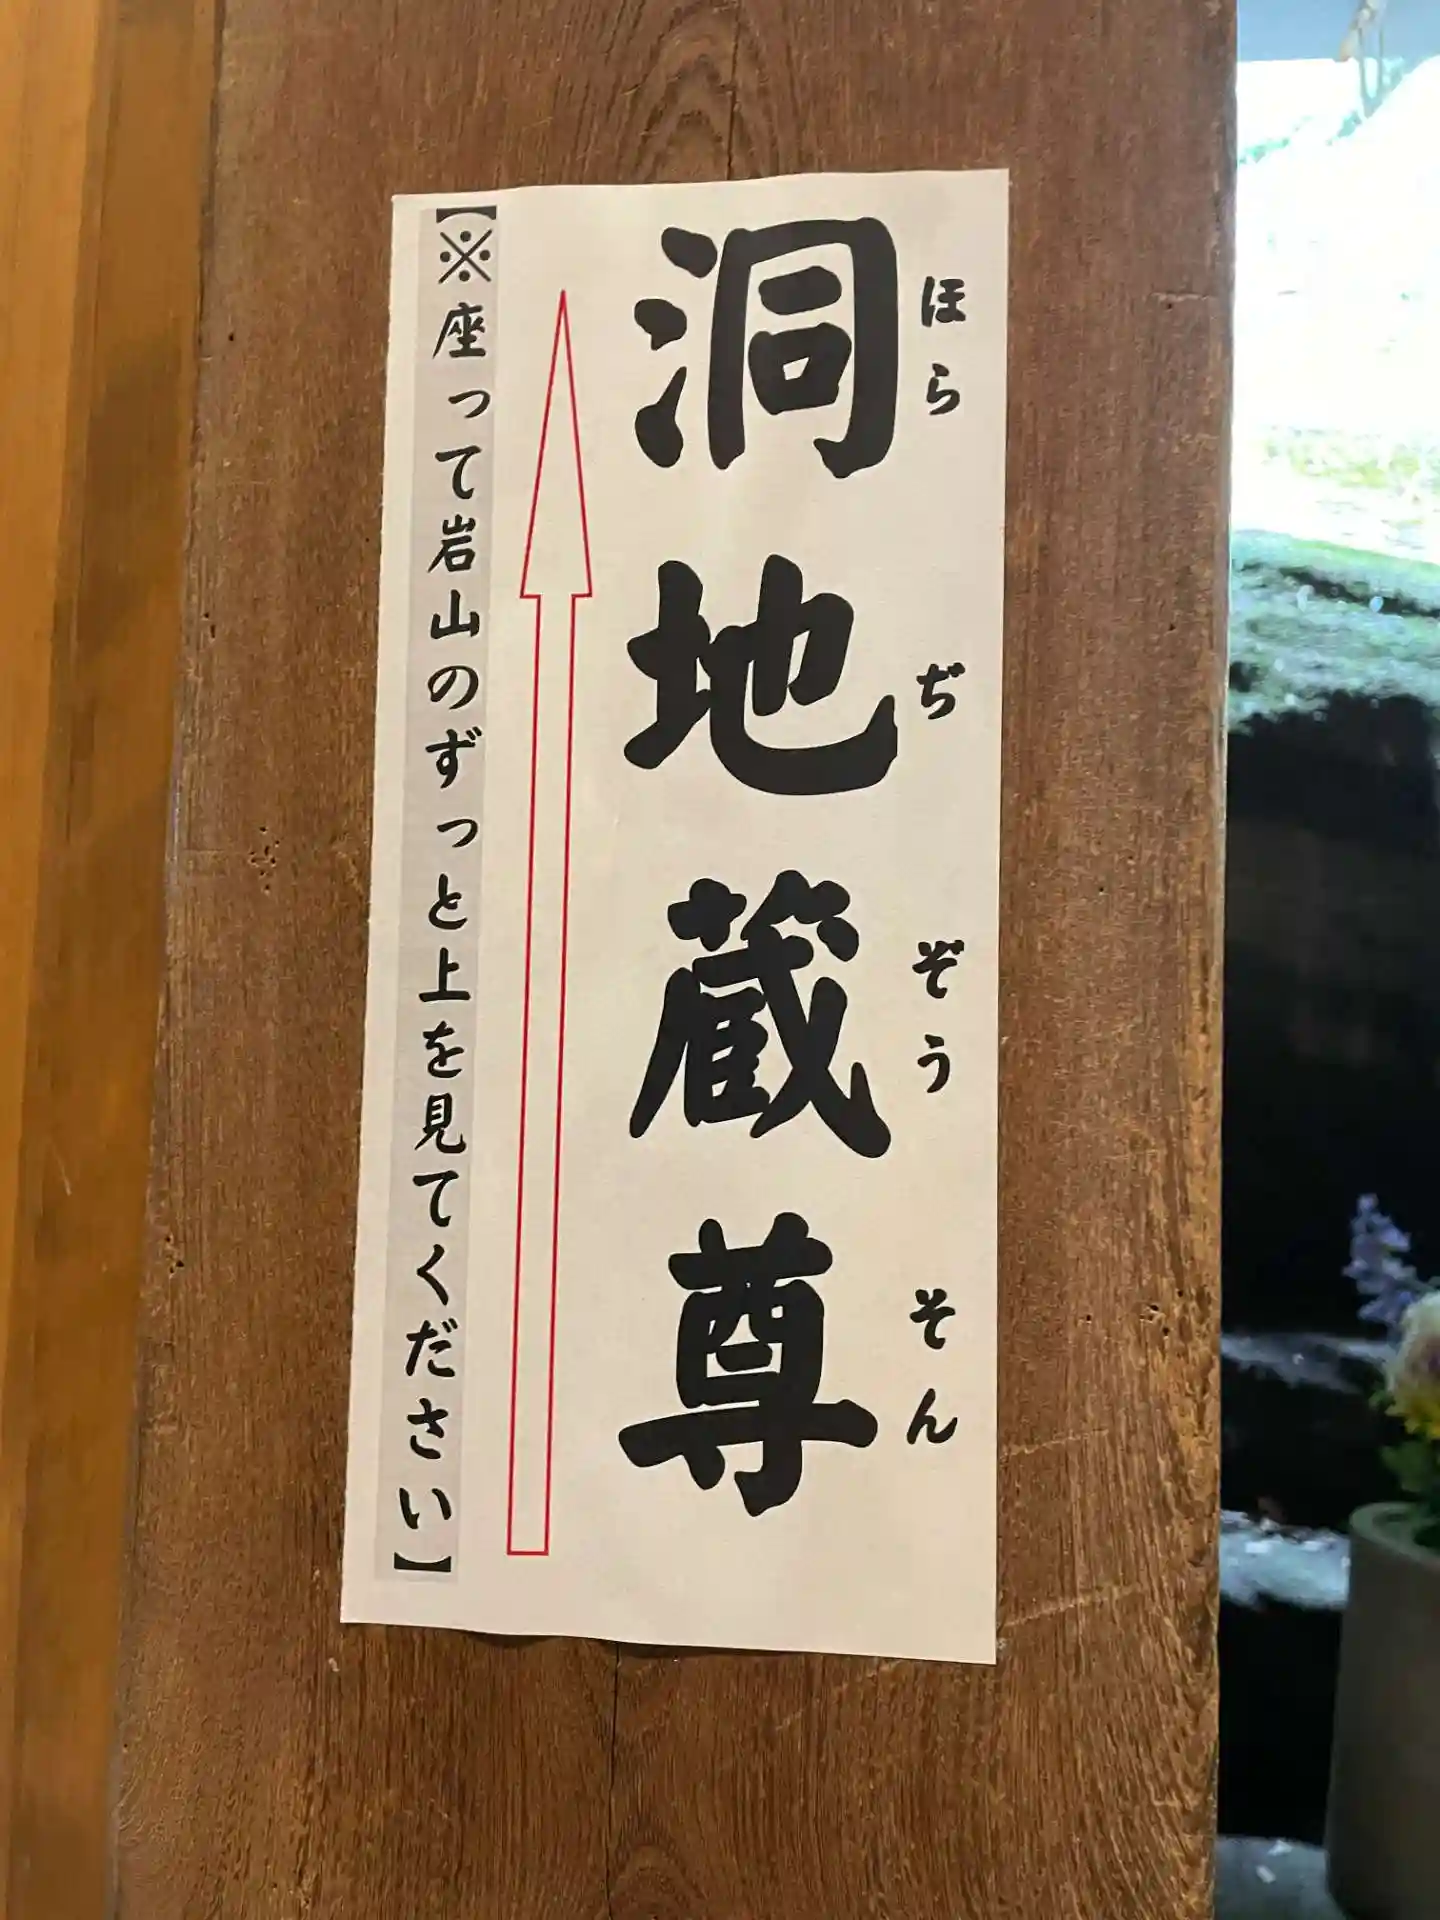 洞地蔵尊
ほらぢぞうそん
【※座って岩山のずっと上を見てください】